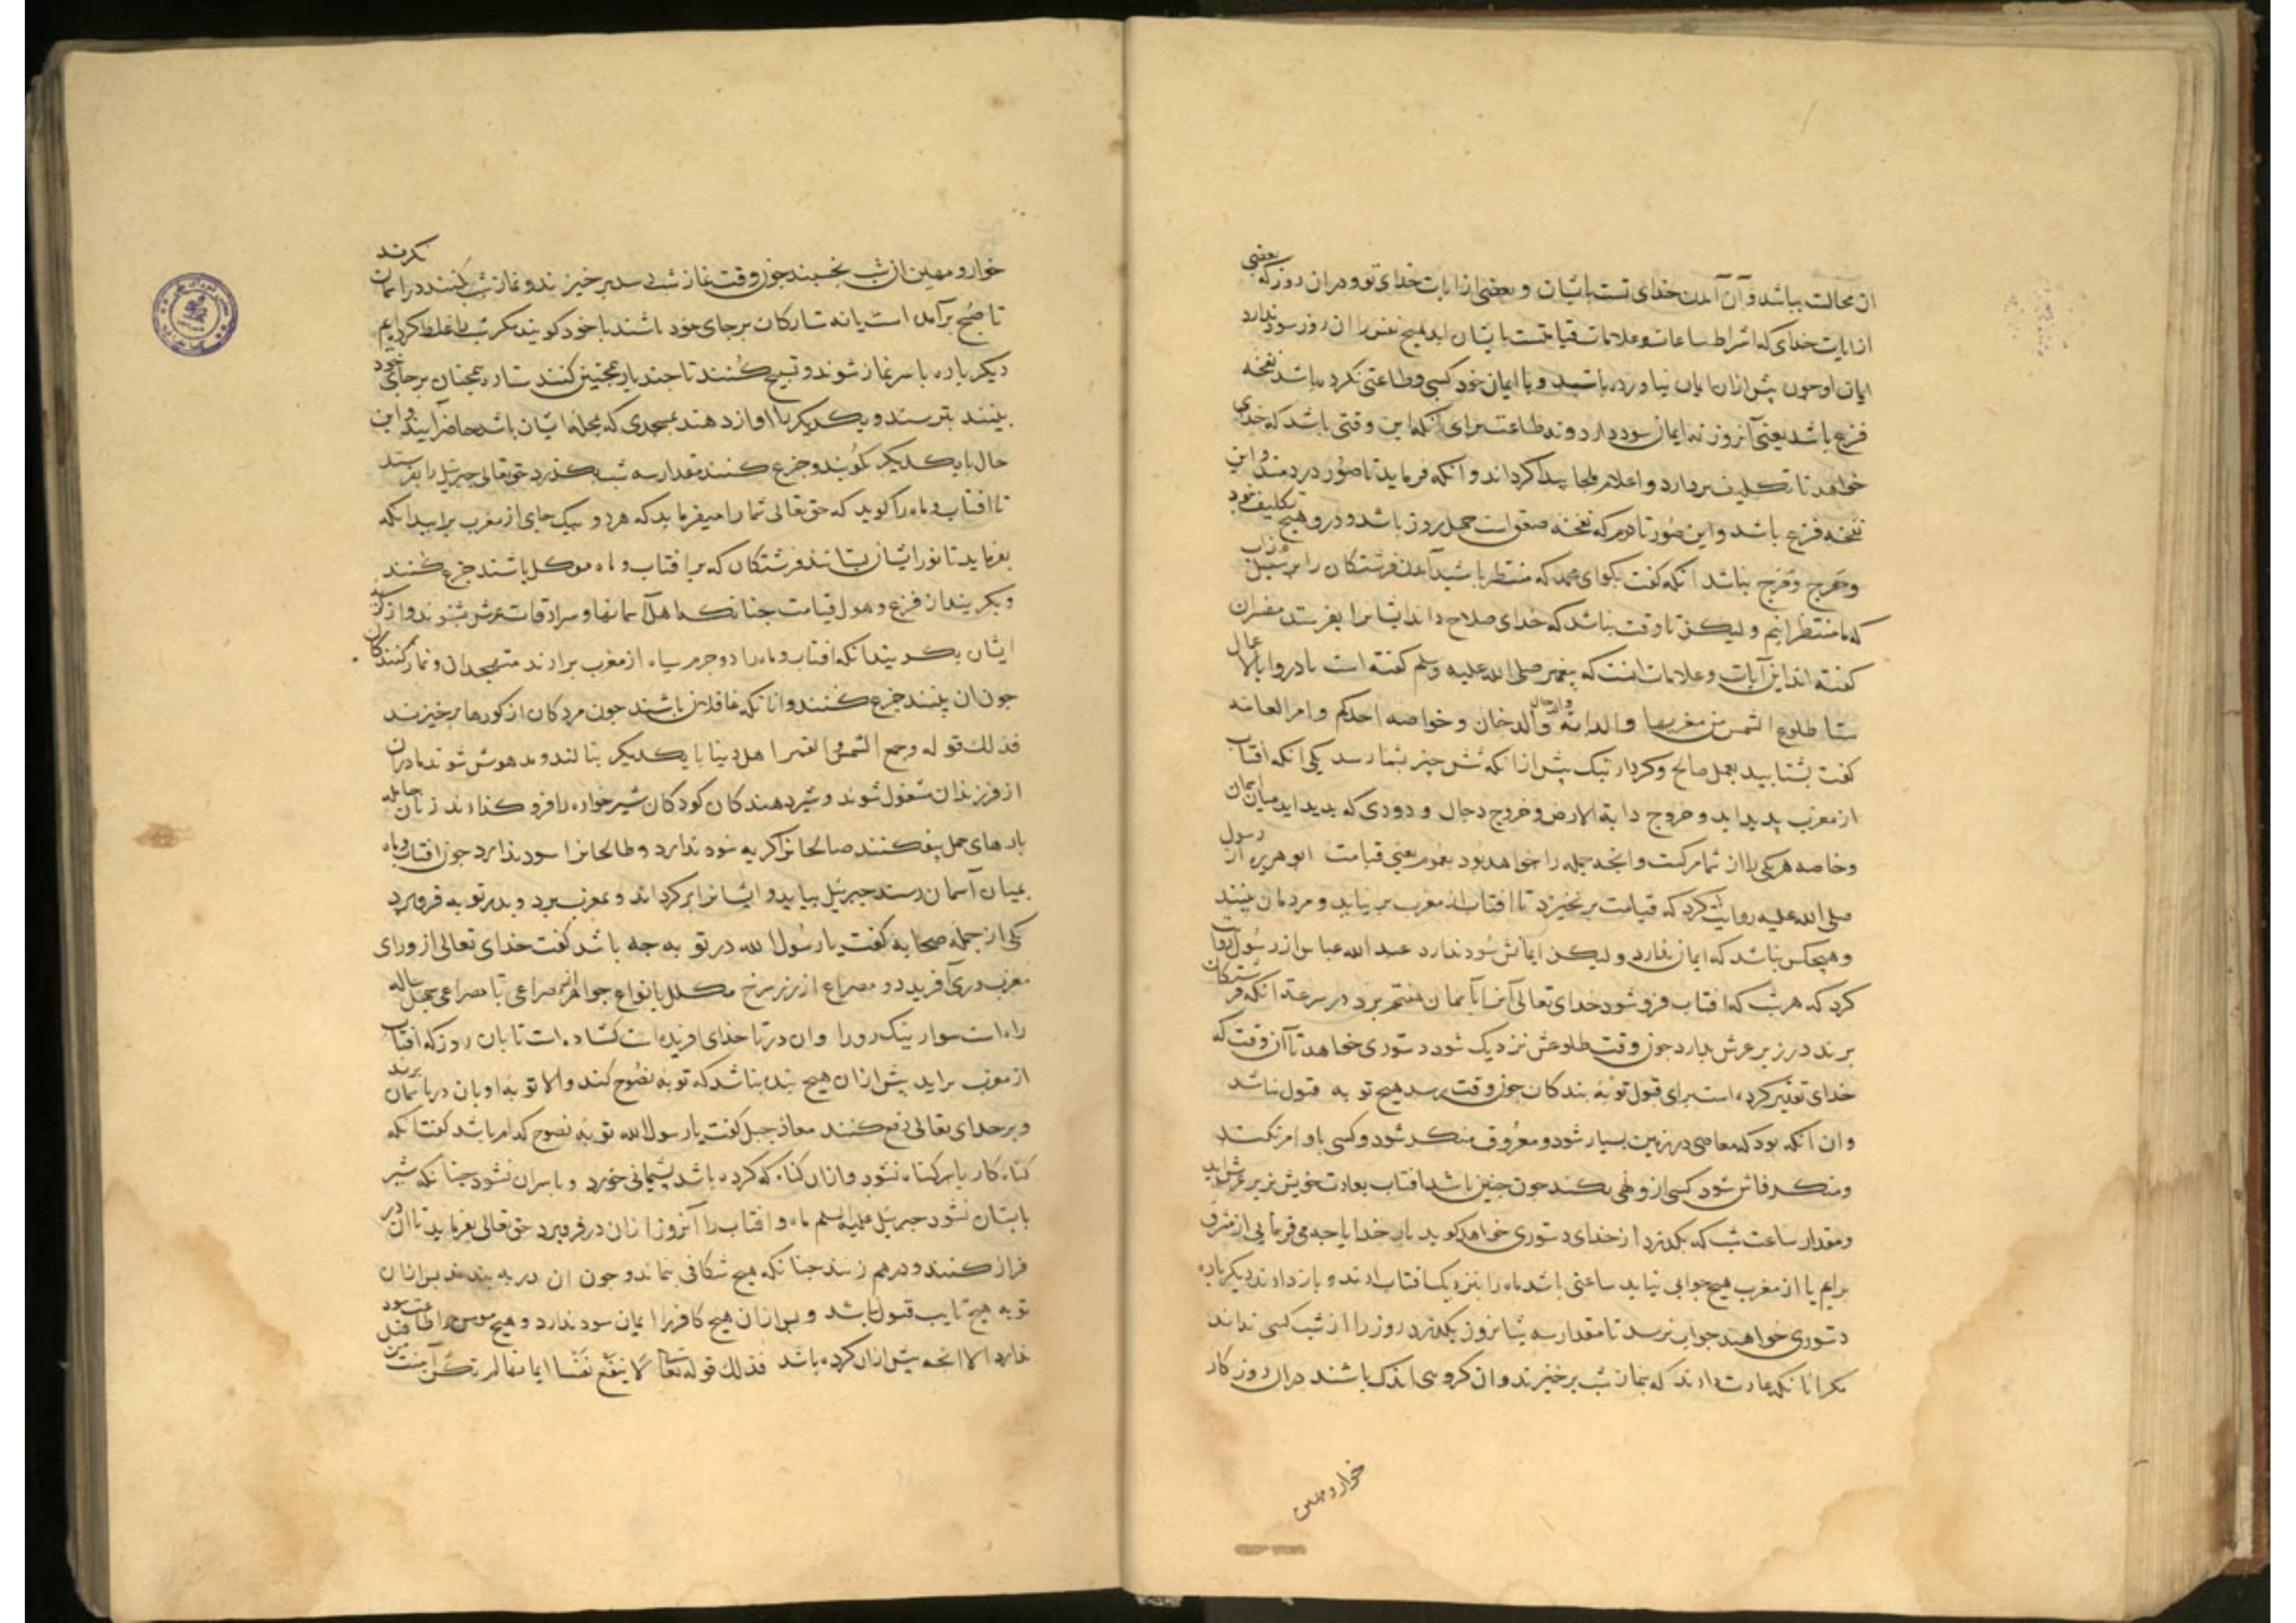 ان محالت بباشد و آن آمدن خدای تست بایشان و بعضی از ایات خدای تو و دران روز که بعضی
از ایات خدای که اشراط ساعات و علامات قیامتست بایشان اید هیچ نفس را ان روز سود ندارد
ایمان او چون پیش ازان ایمان نیاورده باشید و با ایمان خود کسبی و طاعتی نکرده باشد نفخه
فزع باشد یعنی آنروز نه ایمان سود دارد و نه طاعت برای آنکه این وقتی باشد که خدای
خواهد تا تکلیف بردارد و اعلام ملجا پیدا کرداند و انکه فرماید تا صور در دمند و این
نفخه فزع باشد و این صور تا دوم که نفخه صعق است چهل روز باشد و درو هیچ تکلیف نبود
و هرج و مرج بباشد انکه کفت بکوای محمد که منتظر باشید آمدن فرشتکان را بر سبیل عذاب
که ما منتظرانیم ولیکن تا وقت بباشد که خدای صلاح داند ایشانرا بفرستد مفسران
کفته اند این آیات و علامات انست که پیغمبر صلی الله علیه وسلم کفته است بادروا بالاعمال
ستا طلوع الشمس من مغربها والدابه والدجال والدخان وخواصه احدکم وامر العامه
کفت بشتابید بعمل صالح و کردار نیک پیش ازانکه شش چیز بشما رسد یکی انکه افتاب
از مغرب پدید اید و خروج دابة الارض و خروج دجال و دودی که پدید اید میان آسمان
و خاصه هریکی را از شما مرکست و انچه جمله را خواهد بود بعموم یعنی قیامت ابو هریره از رسول
صلی الله علیه روایت کرد که قیامت برنخیزد تا افتاب از مغرب برنیاید و مردمان ببینند
و هیچکس نباشد که ایمان ندارد ولیکن ایمانش سود ندارد عبد الله عباس از رسول روایت
کرد که هر شب که افتاب فرو شود خدای تعالی آنرا بآسمان هفتم برد در سرعت انکه فرشتکان
برند در زیر عرش بدارد چون وقت طلوعش نزدیک شود دستوری خواهد تا آن وقت که
خدای تقدیر کرده است برای قبول توبه بندکان چون وقت رسد هیچ توبه قبول نباشد
و ان انکه بود که معاصی در زمین بسیار شود و معروف منکر شود و کسی باو امر نکند
و منکر فاش شود کسی ازو نهی نکند چون چنین باشد افتاب بعادت خویش زیر عرش اید
و مقدار ساعت شب که بکذرد از خدای دستوری خواهد کوید بار خدایا چه می فرمایی از مشرق
برایم یا از مغرب هیچ جوابی نیاید ساعتی باشد ماه را بنزدیک افتاب ارند و بازدارند دیکر باره
دستوری خواهند جواب نرسد تا مقدار سه شبانروز بکذرد روز را از شب کسی نداند
مکر انانکه عادت دارند که بنماز شب برخیزند و ان کروهی اندک باشند دران روزکار
خوار و مهین
خوار و مهین ان شب بخسبند چون وقت نماز شب رسد برخیزند و نماز شب بکنند در اسمان نکرند
تا صبح برآمده است یا نه ستارکان بر جای خود باشند با خود کویند مکر شب را غلط کرده ایم
دیکر باره با سر نماز شوند و تسبیح کنند تا چند بار همچنین کنند ستاره همچنان بر جای خود
بینند بترسند و یکدیکر را اواز دهند بمسجدی که بمحله ایشان باشد حاضر آیند و این
حال با یکدیکر بکویند و جزع کنند مقدار سه شب بکذرد حق تعالی جبرئیل را بفرستد
تا افتاب و ماه را کوید که حق تعالی شما را میفرماید که هر دو بیک جای از مغرب برایید انکه
بفرماید تا نور ایشان بستانند فرشتکان که بر افتاب و ماه موکل باشند جزع کنند
و بکریند از فزع و هول قیامت چنانکه اهل آسمانها و سرادقات عرش بشنوند و از کریه
ایشان بکریند انکه افتاب و ماه را دو جرم سیاه از مغرب برارند متهجدان و نماز کنندکان
چون ان بینند جزع کنند و انانکه غافلان باشند چون مردکان از کورها برخیزند
فذلک قوله وجمع الشمس والقمر اهل دنیا با یکدیکر بنالند و مدهوش شوند مادران
از فرزندان مشغول شوند و شیر دهندکان کودکان شیرخواره را فرو کذارند زنان حامله
بارهای حمل بیفکنند صالحانرا کریه سود ندارد و طالحانرا سود ندارد چون افتاب و ماه
بمیان آسمان رسند جبرئیل بیاید و ایشانرا برکرداند و بمغرب برد و بدر توبه فرو برد
یکی از جمله صحابه کفت یا رسول الله در توبه چه باشد کفت خدای تعالی از ورای
مغرب دری آفرید دو مصراع از زر سرخ مکلل بانواع جواهر از مصراعی تا مصراعی چهل ساله
راه است سوار نیک رو را و ان در تا خدای افریده است کشاده است تا بان روز که افتاب
از مغرب براید پیش ازان هیچ بنده نباشد که توبه نصوح کند والا توبه او بان در باسمان برند
و بر خدای تعالی رفع کنند معاذ جبل کفت یا رسول الله توبه نصوح کدام باشد کفت انکه
کناه کار با سر کناه نشود و ازان کناه که کرده باشد پشیمانی خورد و با سر ان نشود چنانکه شیر
با پستان نشود جبرئیل علیه السلم ماه و افتاب را آنروز ازان در فرو برد حق تعالی بفرماید تا ان در
فراز کنند و درهم زنند چنانکه هیچ شکافی نماند و چون ان در ببندند پس ازان
توبه هیچ تایب قبول نباشد و پس ازان هیچ کافر را ایمان سود ندارد و هیچ مومن را طاعت سود
ندارد الا انچه پیش ازان کرده باشد فذلک قوله تعالی لا ینفع نفسا ایمانها لم تکن آمنت من قبل